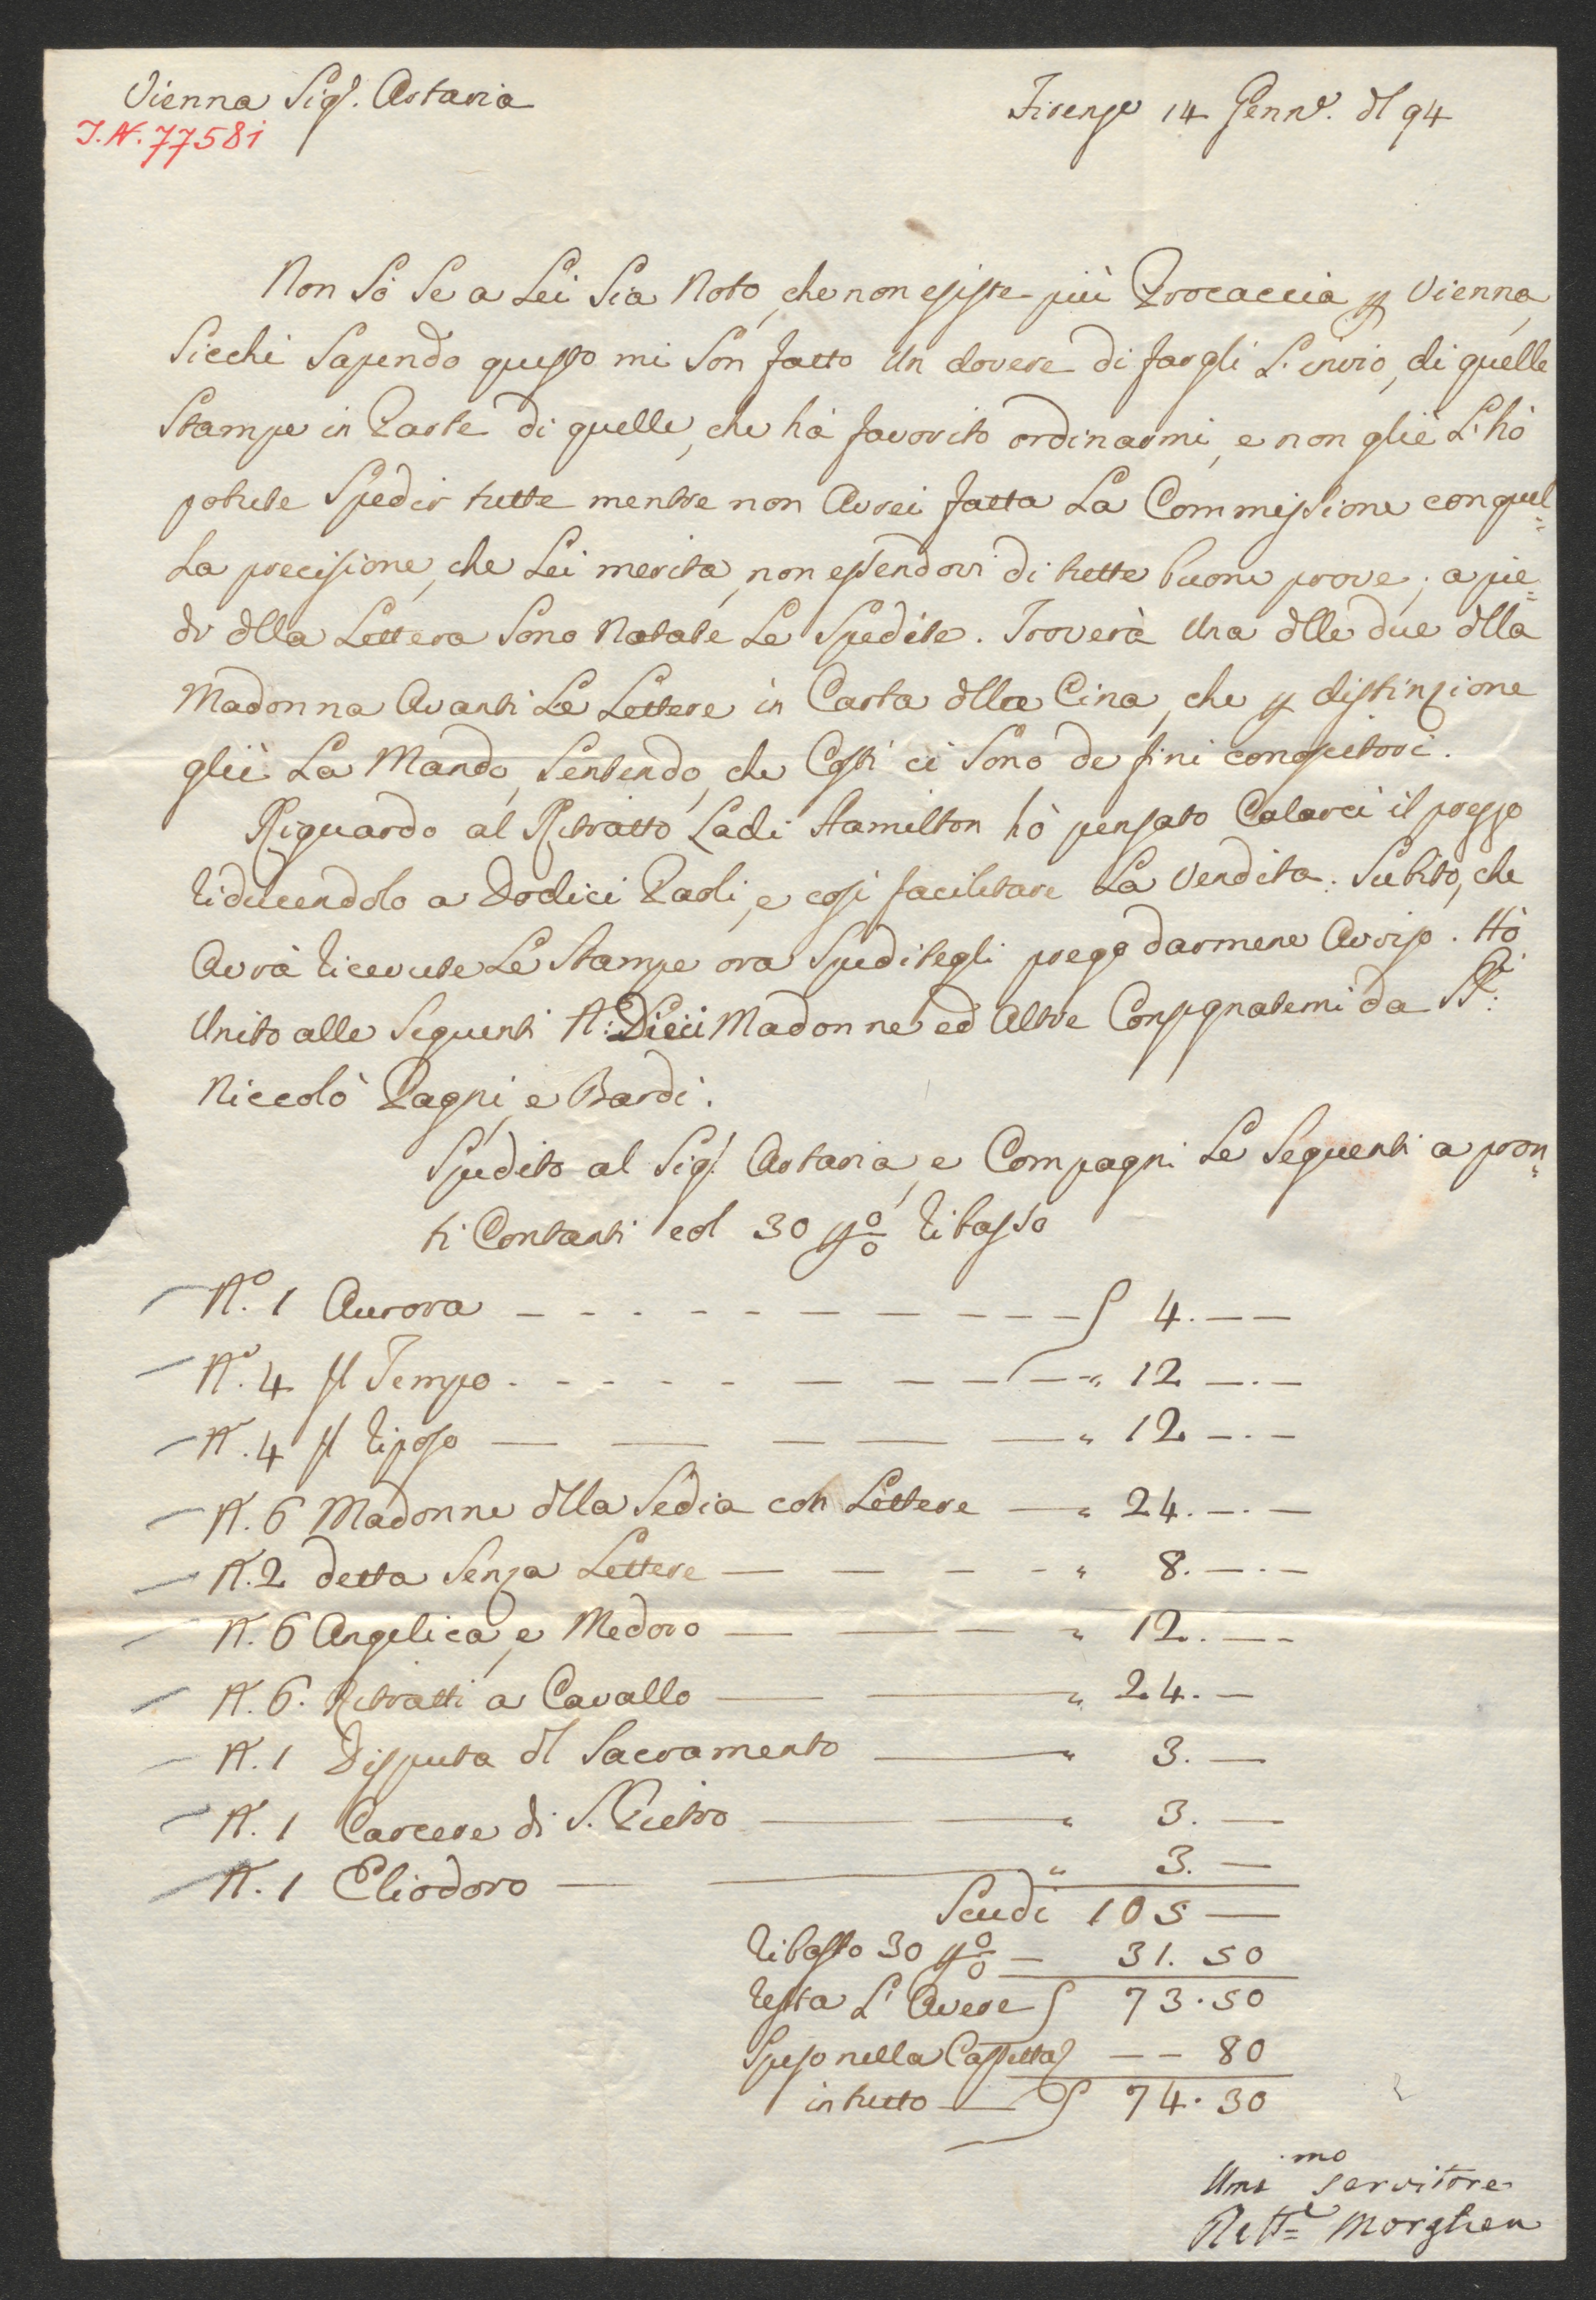 Vienna Sig.r Artaria
Firenze 14 Genn.o dl 94
I.N. 77581
Non Sò Se a Lei Sia Noto, che non esiste più Procaccia p Vienna,
Sicchè Sapendo questo mi Son fatto Un dovere di fargli L'invio, di quelle
Stampe in Parte di quelle, che hà favorito ordinarmi, e non gliè L'hò
potute Spedir tutte mentre non Avrei fatta La Commissione con quel=
La precisione, che Lei merita, non essendovi di tutte buone prove; a pie=
di dlla Lettera Sono Notate Le Spedite. Troverà Una dlle due dlla
Madonna Avanti Le Lettere in Carta dlla Cina, che p distinzione
gliè La Mando, Sentendo, che Costì ci Sono de fini conoscitori.
Riguardo al Ritratto Ladi Hamilton hò pensato Calarci il prezzo
riducendolo a Dodici Paoli, e così facilitare La Vendita. Subito, che
Avrà ricevute Le Stampe ora Speditegli prego darmene Avviso. Hò
Unito alle Seguenti N: Dieci Madonne ed Altre Consegnatemi da SS.ri
Niccolò Pagni, e Bardi.
Spedito al Sig.r Artaria, e Compagni Le Seguenti a pron=
ti Contanti col 30 p o/o ribasso
N.o 1 Aurora 4. — —
N.o 4 Il Tempo " 12 —. —
N. 4 Il riposo " 12 —. —
N. 6 Madonne dlla Sedia con Lettere " 24. —. —
N. 2 detta Senza Lettere " 8. —. —
N. 6 Angelica, e Medoro " 12. — —
N. 6. Ritratti a Cavallo " 24. —
N. 1 Disputa dl Sacramento " 3. —
N. 1 Carcere di S. Pietro " 3. —
N. 1 Eliodoro " 3. —
Scudi 105 —
ribasso 30 p o/o — 31. 50
resta L'Avere 73. 50
Speso nella Cassetta — — 80
in tutto 74. 30
Um.mo servitore
Raff.e Morghen